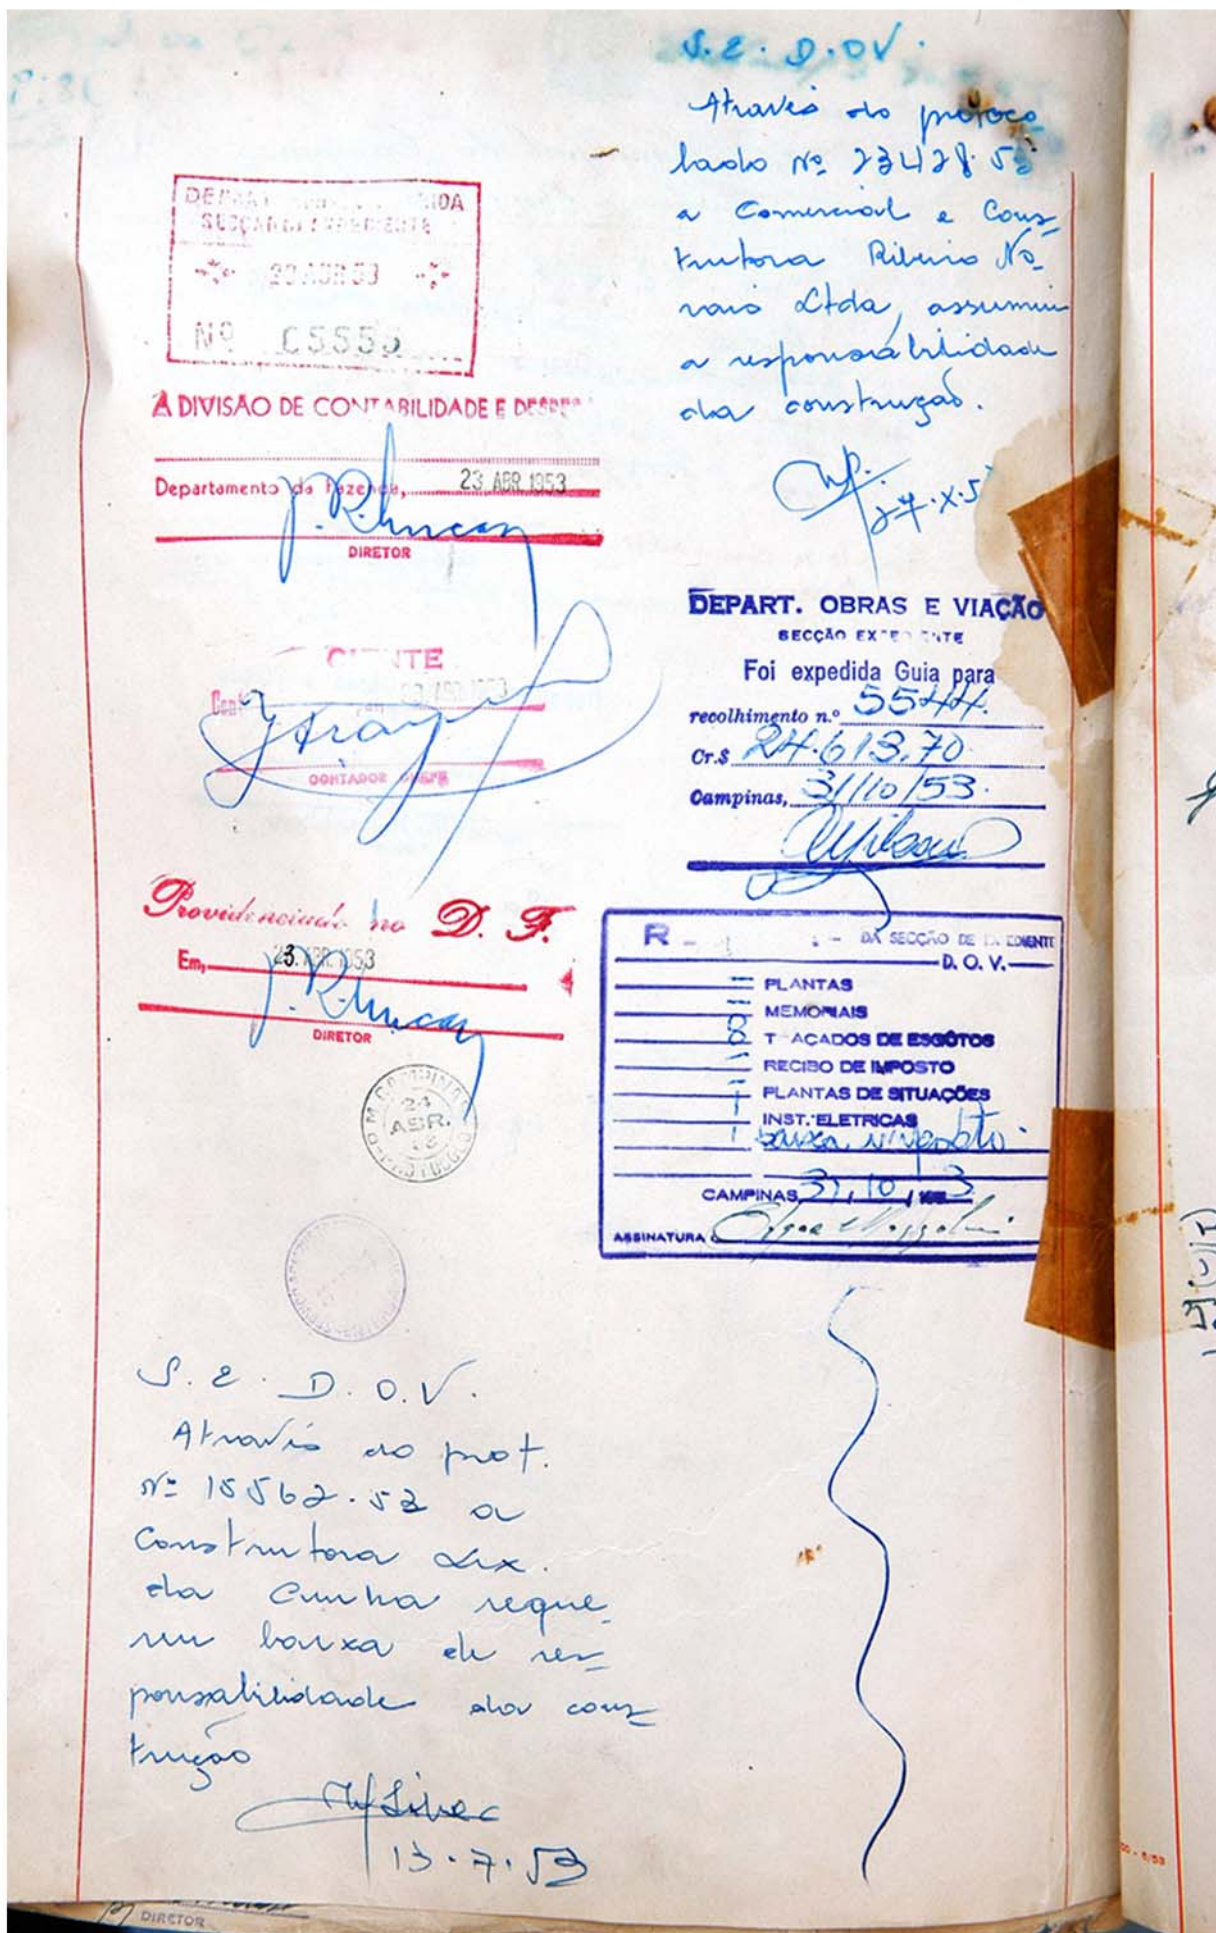 SECÇÃO DE EXPEDIENTE
23 ABR 53
Nº 05555
A DIVISÃO DE CONTABILIDADE E DESPESA
Departamento da Fazenda, 23 ABR 1953
DIRETOR
CIENTE
CONTADOR CHEFE
Providenciado no D. F.
Em, 23. ABR. 1953
DIRETOR
CAMPINAS
24
ABR.
S. E. D. O. V.
Através do prot.
Nº 15562.53 a
Construtora Lix.
da Cunha reque_
reu baixa de res_
ponsabilidade da cons_
trução
13.7.53
S. E. D. OV.
Através do protoco
lado Nº 23428.53
a Comercial e Cons_
trutora Ribeiro No_
vais Ltda, assumiu
a responsabilidade
da construção.
27.X.5
DEPART. OBRAS E VIAÇÃO
SECÇÃO EXPEDIENTE
Foi expedida Guia para
recolhimento n.º 5544.
Cr.$ 24.613,70
Campinas, 31/10/53.
DA SECÇÃO DE EXPEDIENTE
D. O. V.
PLANTAS
MEMORIAIS
8 TRAÇADOS DE ESGÔTOS
RECIBO DE IMPOSTO
PLANTAS DE SITUAÇÕES
INST. ELETRICAS
baixa
CAMPINAS, 31, 10, 1953
ASSINATURA
DIRETOR